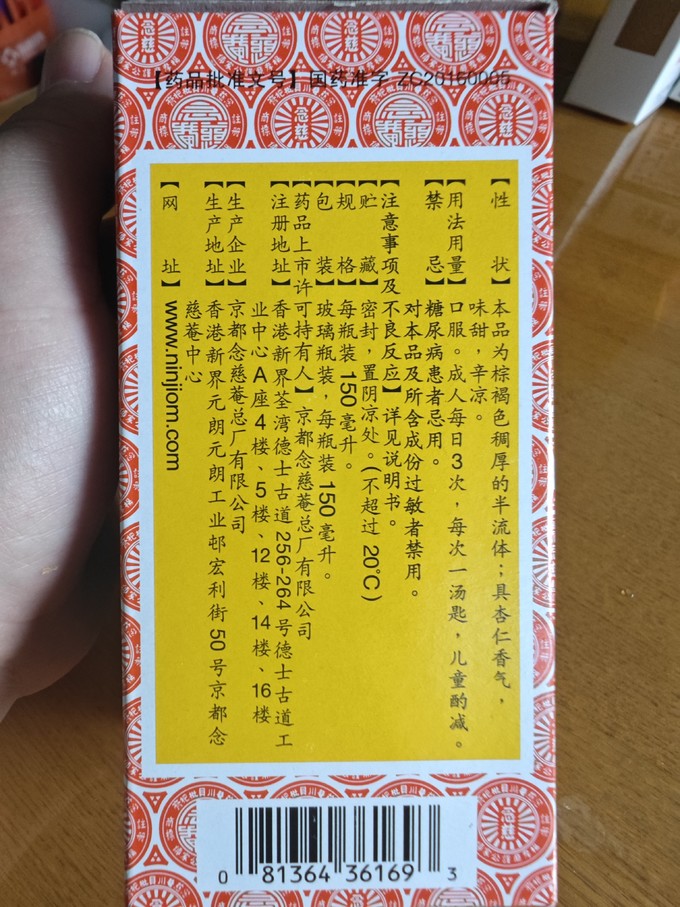 【药品批准文号】国药准字 ZC20150005
【性状】本品为棕褐色稠厚的半流体；具杏仁香气，
味甜，辛凉。
【用法用量】口服。成人每日3次，每次一汤匙，儿童酌减。
【禁忌】糖尿病患者忌用。
对本品及所含成份过敏者禁用。
【注意事项及不良反应】详见说明书。
【贮藏】密封，置阴凉处。(不超过 20°C)
【规格】每瓶装 150 毫升。
【包装】玻璃瓶装，每瓶装 150 毫升。
【药品上市许可持有人】京都念慈菴总厂有限公司
【注册地址】香港新界荃湾德士古道 256-264 号德士古道工
业中心 A 座 4 楼、5 楼、12 楼、14 楼、16 楼
【生产企业】京都念慈菴总厂有限公司
【生产地址】香港新界元朗元朗工业邨宏利街 50 号京都念
慈菴中心
【网址】www.ninjiom.com
0 81364 36169 3
念慈
念慈
念慈
念慈